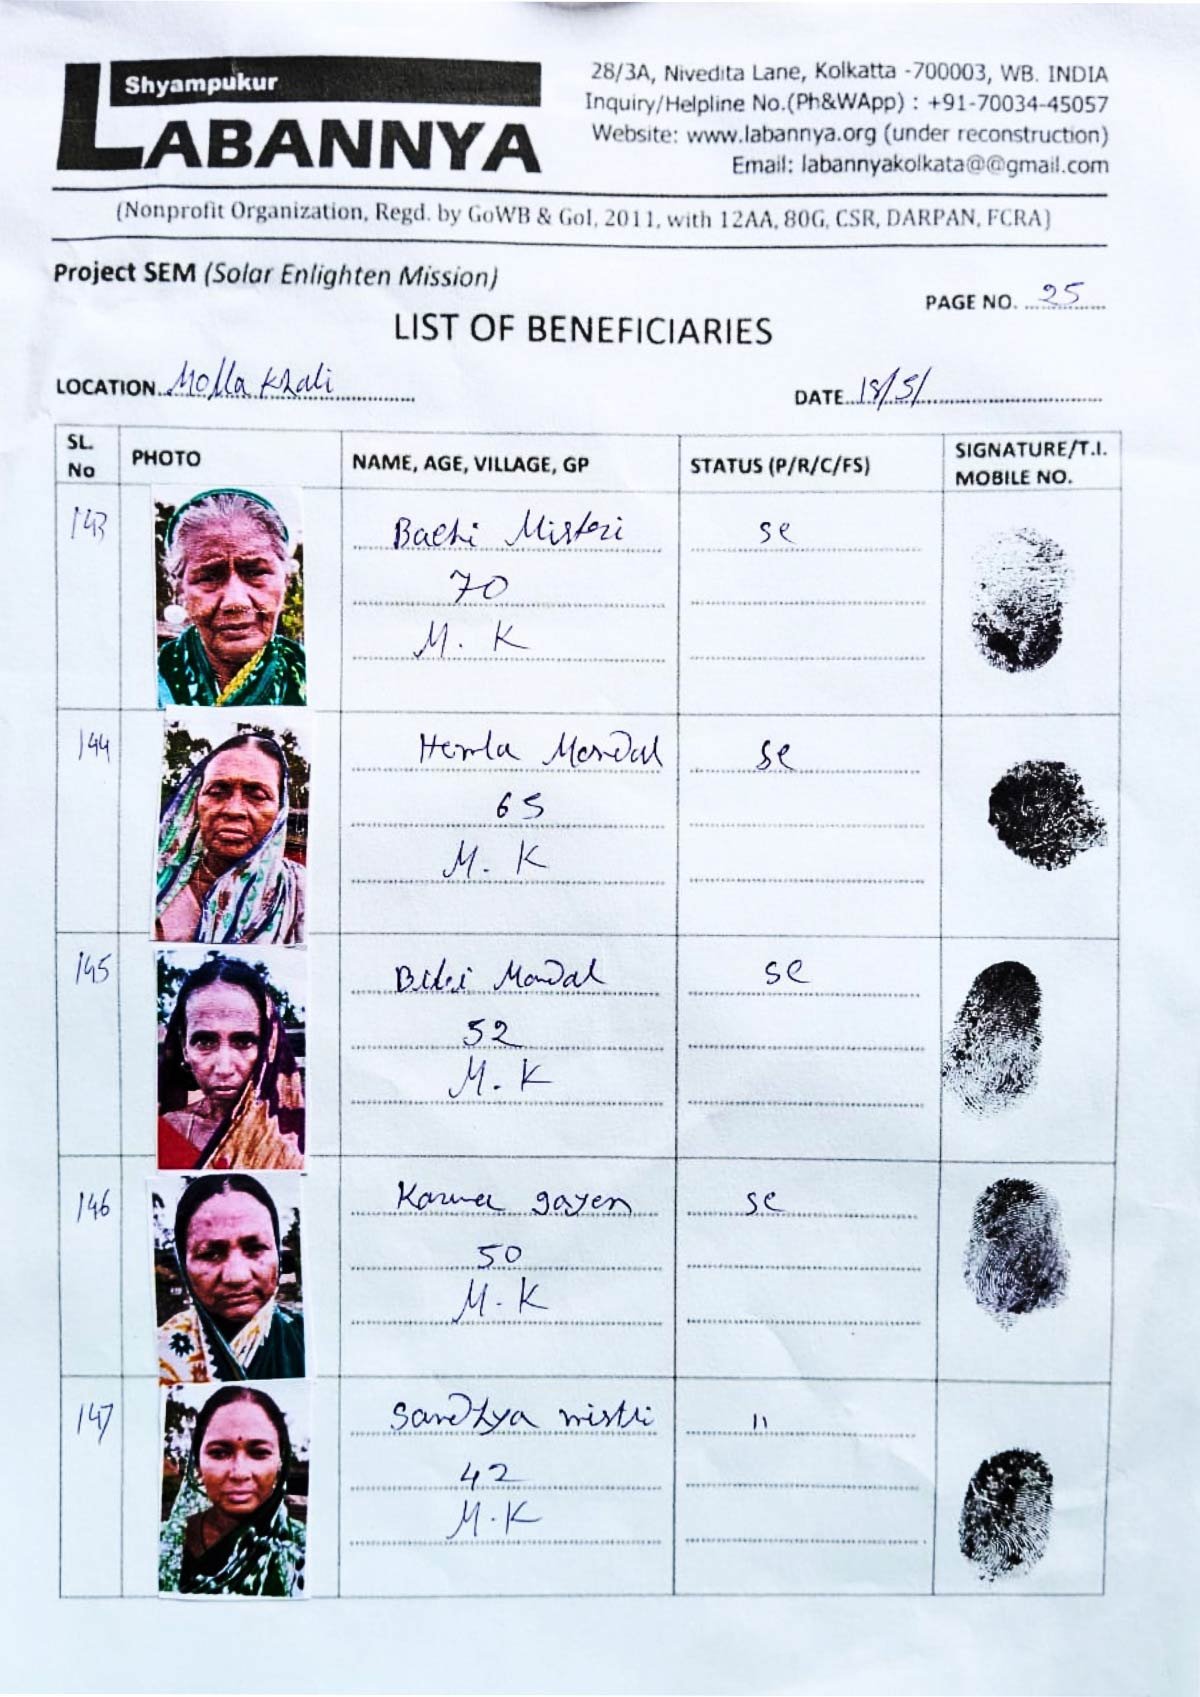 Shyampukur
LABANNYA
28/3A, Nivedita Lane, Kolkatta -700003, WB. INDIA
Inquiry/Helpline No.(Ph&WApp) : +91-70034-45057
Website: www.labannya.org (under reconstruction)
Email: labannyakolkata@@gmail.com
(Nonprofit Organization, Regd. by GoWB & GoI, 2011, with 12AA, 80G, CSR, DARPAN, FCRA)
Project SEM (Solar Enlighten Mission)
PAGE NO. 25
LIST OF BENEFICIARIES
LOCATION Molla Khali
DATE 18/5/
SL. No
PHOTO
NAME, AGE, VILLAGE, GP
STATUS (P/R/C/FS)
SIGNATURE/T.I. MOBILE NO.
143
Misteri
sc
70
M. K
144
Hemla Mondal
sc
65
M. K
145
Mondal
sc
52
M. K
146
gayen
sc
50
M. K
147
Sandhya mistri
"
42
M. K